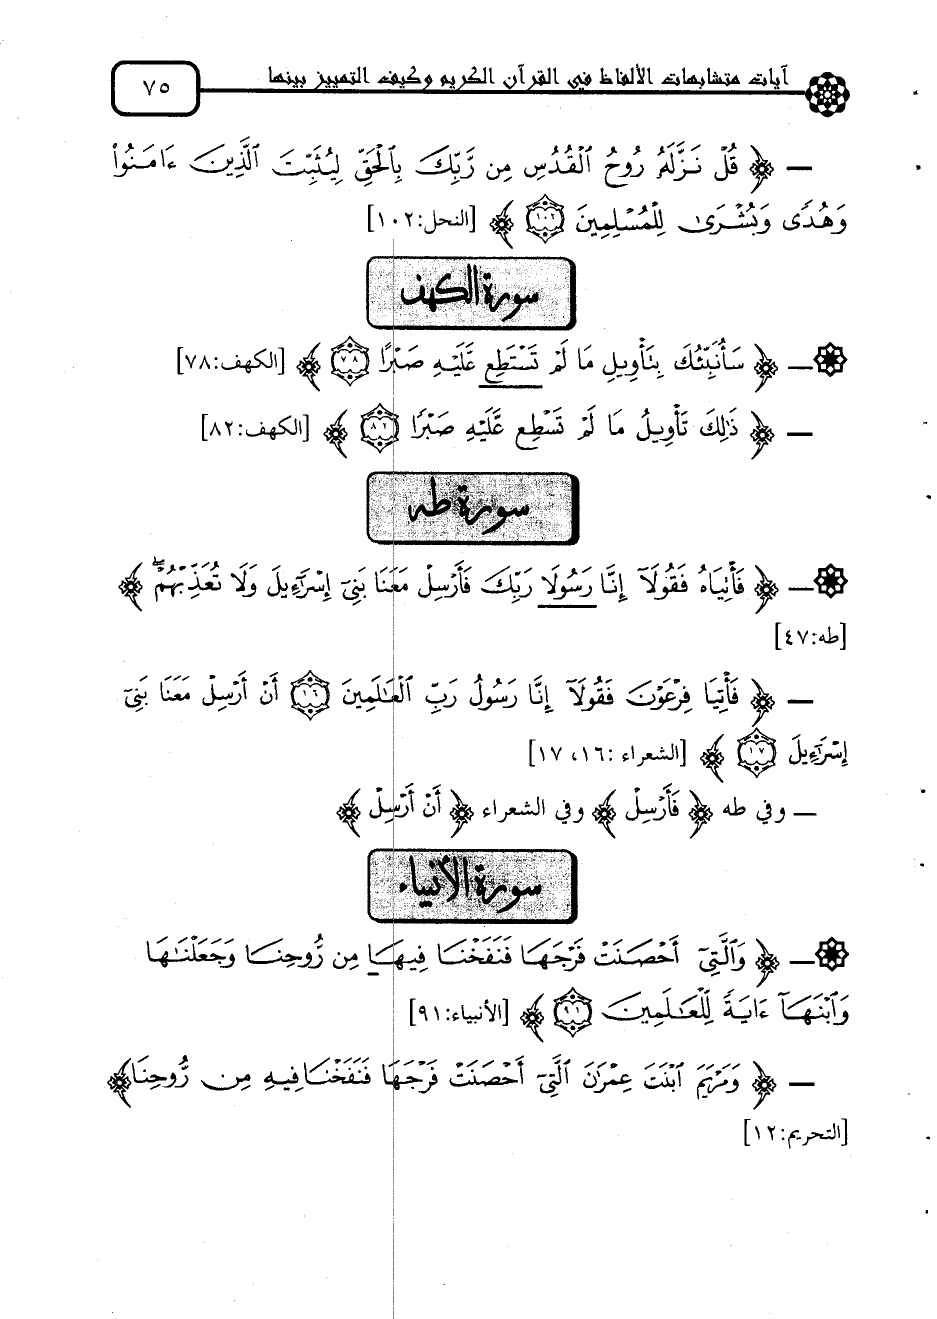 آيات متشابهات الألفاظ في القرآن الكريم وكيف التمييز بينها
٧٥
— ﴿ قُلْ نَزَّلَهُ رُوحُ الْقُدُسِ مِن رَّبِّكَ بِالْحَقِّ لِيُثَبِّتَ الَّذِينَ ءَامَنُوا
وَهُدًى وَبُشْرَىٰ لِلْمُسْلِمِينَ ١٠٢ ﴾ [النحل:١٠٢]
سورة الكهف
— ﴿ سَأُنَبِّئُكَ بِتَأْوِيلِ مَا لَمْ تَسْتَطِع عَّلَيْهِ صَبْرًا ٧٨ ﴾ [الكهف:٧٨]
— ﴿ ذَٰلِكَ تَأْوِيلُ مَا لَمْ تَسْطِع عَّلَيْهِ صَبْرًا ٨٢ ﴾ [الكهف:٨٢]
سورة طه
— ﴿ فَأْتِيَاهُ فَقُولَآ إِنَّا رَسُولَا رَبِّكَ فَأَرْسِلْ مَعَنَا بَنِىٓ إِسْرَٰٓءِيلَ وَلَا تُعَذِّبْهُمْ ۖ ﴾
[طه:٤٧]
— ﴿ فَأْتِيَا فِرْعَوْنَ فَقُولَآ إِنَّا رَسُولُ رَبِّ الْعَٰلَمِينَ ١٦ أَنْ أَرْسِلْ مَعَنَا بَنِىٓ
إِسْرَٰٓءِيلَ ١٧ ﴾ [الشعراء :١٦، ١٧]
— وفي طه ﴿ فَأَرْسِلْ ﴾ وفي الشعراء ﴿ أَنْ أَرْسِلْ ﴾
سورة الأنبياء
— ﴿ وَالَّتِىٓ أَحْصَنَتْ فَرْجَهَا فَنَفَخْنَا فِيهَا مِن رُّوحِنَا وَجَعَلْنَٰهَا
وَابْنَهَآ ءَايَةً لِّلْعَٰلَمِينَ ٩١ ﴾ [الأنبياء:٩١]
— ﴿ وَمَرْيَمَ ابْنَتَ عِمْرَٰنَ الَّتِىٓ أَحْصَنَتْ فَرْجَهَا فَنَفَخْنَا فِيهِ مِن رُّوحِنَا ﴾
[التحريم:١٢]